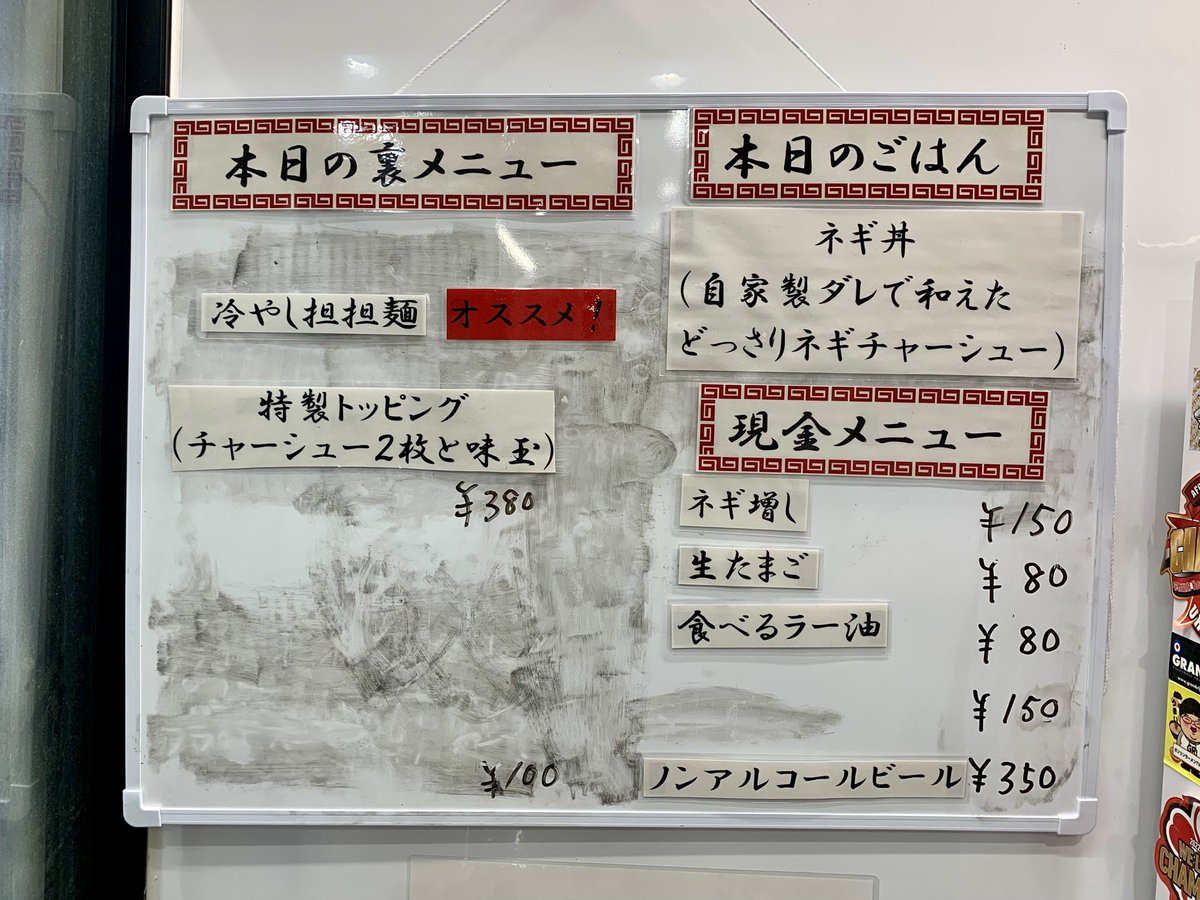 本日の裏メニュー
冷やし担担麺 オススメ!
特製トッピング
(チャーシュー2枚と味玉)
¥380
¥100
本日のごはん
ネギ丼
(自家製ダレで和えた
どっさりネギチャーシュー)
現金メニュー
ネギ増し ¥150
生たまご ¥80
食べるラー油 ¥80
¥150
ノンアルコールビール ¥350
GRAN